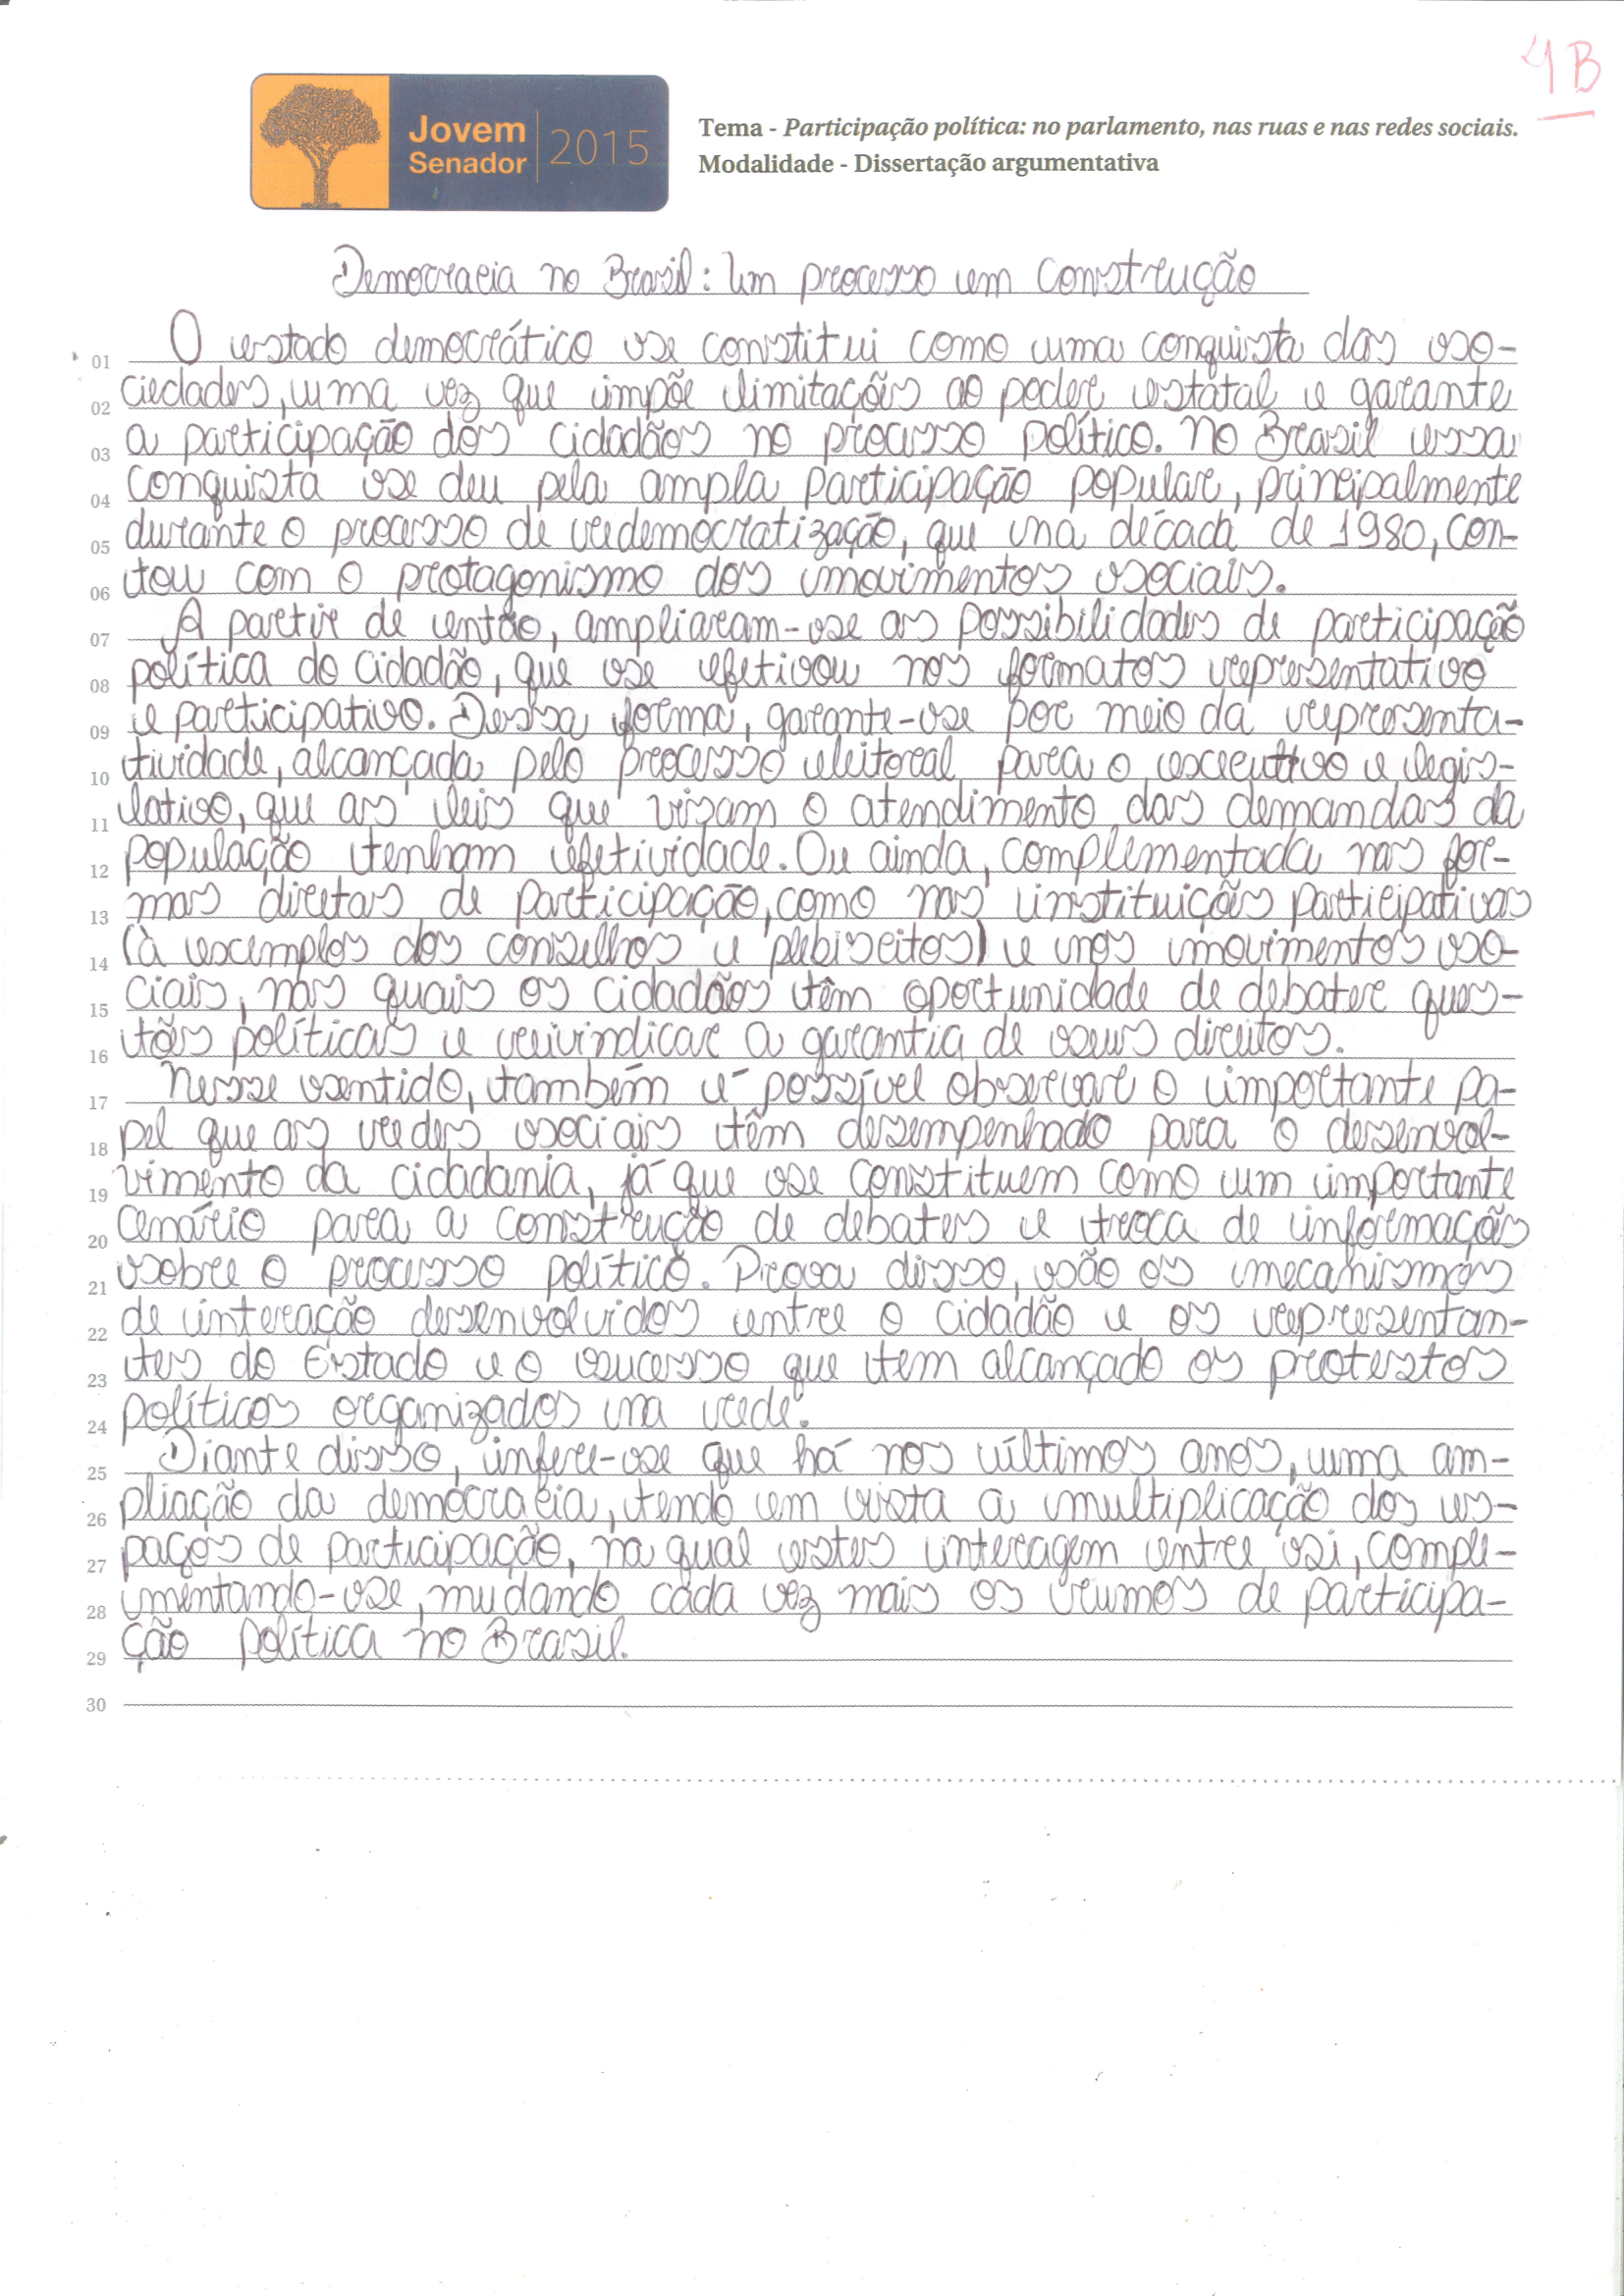 4B
Jovem
Senador
2015
Tema - Participação política: no parlamento, nas ruas e nas redes sociais.
Modalidade - Dissertação argumentativa
Democracia no Brasil: Um processo em construção
01 O estado democrático se constitui como uma conquista das so-
02 ciedades, uma vez que impõe limitações ao poder estatal e garante
03 a participação dos cidadãos no processo político. No Brasil essa
04 conquista se deu pela ampla participação popular, principalmente
05 durante o processo de redemocratização, que na década de 1980, con-
06 tou com o protagonismo dos movimentos sociais.
07 A partir de então, ampliaram-se as possibilidades de participação
08 política do cidadão, que se efetivou nos formatos representativo
09 e participativo. Dessa forma, garante-se por meio da representa-
10 tividade, alcançada pelo processo eleitoral para o executivo e legis-
11 lativo, que as leis que visam o atendimento das demandas da
12 população tenham efetividade. Ou ainda, complementada nas for-
13 mas diretas de participação, como nas instituições participativas
14 (à exemplos dos conselhos e plebiscitos) e nos movimentos so-
15 ciais, nas quais os cidadãos têm oportunidade de debater ques-
16 tões políticas e reivindicar a garantia de seus direitos.
17 Nesse sentido, também é possível observar o importante pa-
18 pel que as redes sociais têm desempenhado para o desenvol-
19 vimento da cidadania, já que se constituem como um importante
20 cenário para a construção de debates e troca de informações
21 sobre o processo político. Prova disso, são os mecanismos
22 de interação desenvolvidos entre o cidadão e os representan-
23 tes do Estado e o sucesso que tem alcançado os protestos
24 políticos organizados na rede.
25 Diante disso, infere-se que há nos últimos anos, uma am-
26 pliação da democracia, tendo em vista a multiplicação dos es-
27 paços de participação, na qual estes interagem entre si, comple-
28 mentando-se, mudando cada vez mais os rumos de participa-
29 ção política no Brasil.
30